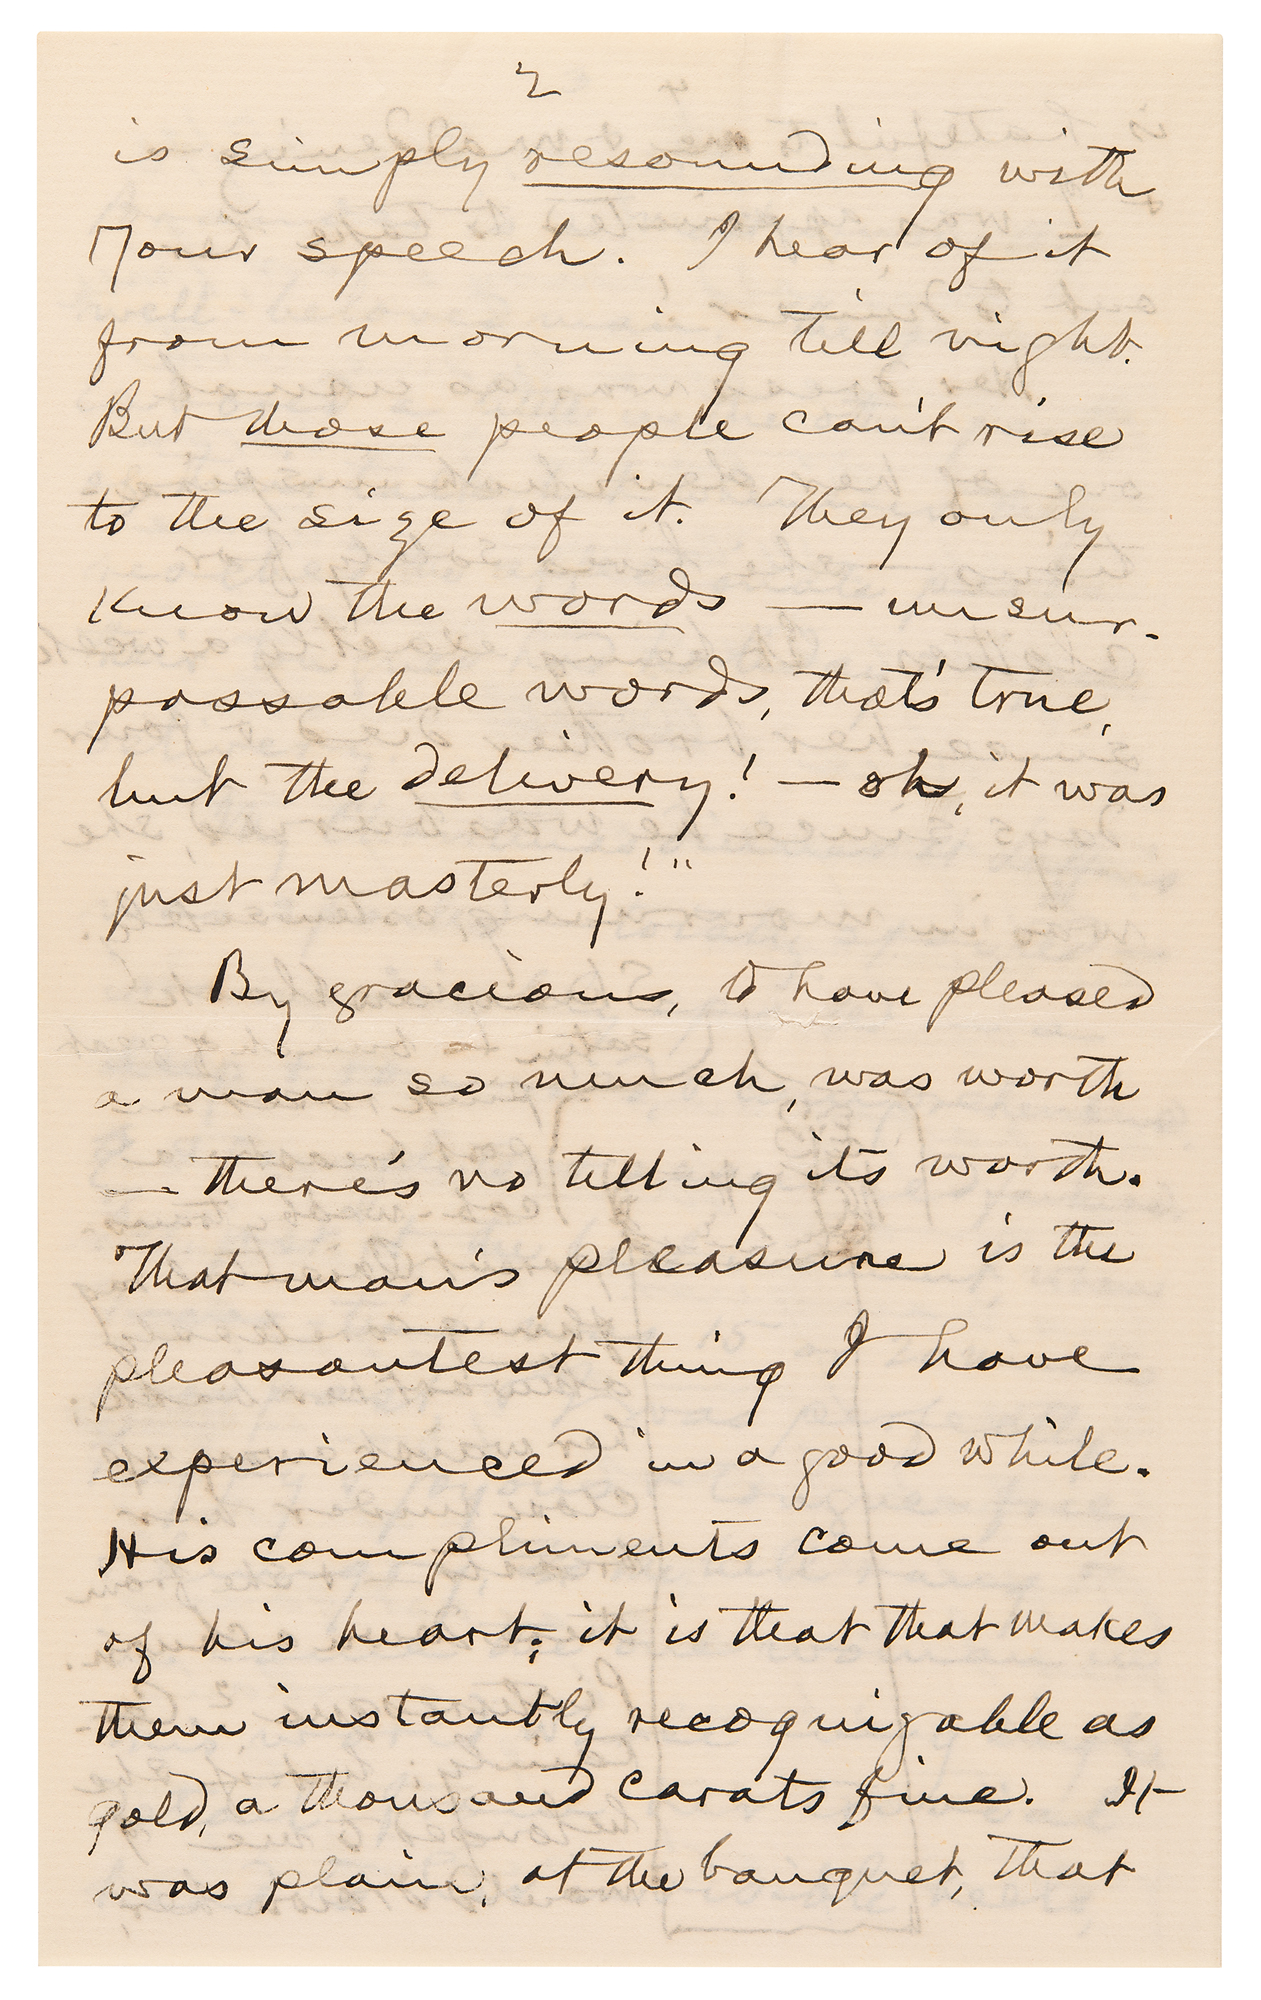 2
is simply resounding with
your speech. I hear of it
from morning till night.
But those people can't rise
to the size of it. They only
know the words — unsur-
passable words, that's true,
but the delivery! — oh, it was
just masterly!"
By gracious, to have pleased
a man so much, was worth
— there's no telling its worth.
That man's pleasure is the
pleasantest thing I have
experienced in a good while.
His compliments come out
of his heart; it is that that makes
them instantly recognizable as
gold, a thousand carats fine. It
was plain, at the banquet, that